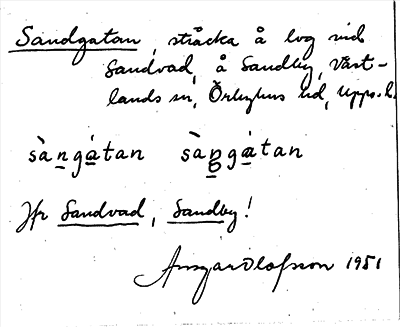 Sandgatan, sträcka å lvg vid
Sandvad, å Sandby, Väst-
lands sn, Örbyhus hd, Upps. l.
sàngátan sàngátan
Jfr Sandvad, Sandby!
Ansgar Olofsson 1951